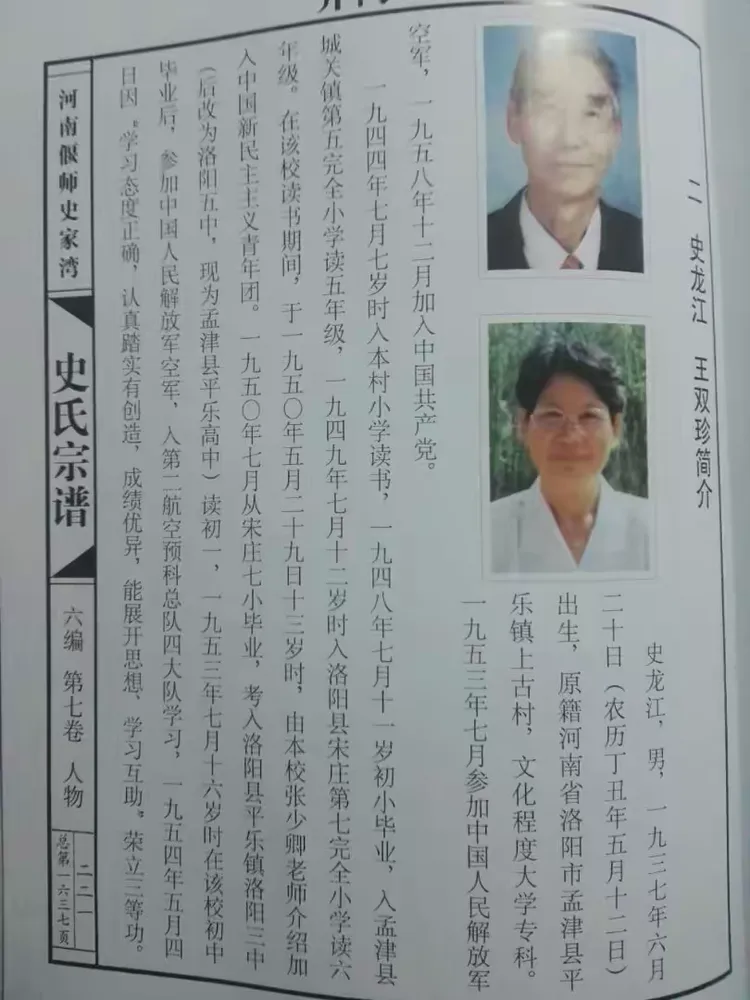 二 史龙江 王双珍简介
史龙江，男，一九三七年六月
二十日（农历丁丑年五月十二日）
出生，原籍河南省洛阳市孟津县平
乐镇上古村，文化程度大学专科。
一九五三年七月参加中国人民解放军
空军，一九五八年十二月加入中国共产党。
一九四四年七月七岁时入本村小学读书，一九四八年七月十一岁初小毕业，入孟津县
城关镇第五完全小学读五年级，一九四九年七月十二岁时入洛阳县宋庄第七完全小学读六
年级。在该校读书期间，于一九五〇年五月二十九日十三岁时，由本校张少卿老师介绍加
入中国新民主主义青年团。一九五〇年七月从宋庄七小毕业，考入洛阳县平乐镇洛阳三中
（后改为洛阳五中，现为孟津县平乐高中）读初一，一九五三年七月十六岁时在该校初中
毕业后，参加中国人民解放军空军，入第二航空预科总队四大队学习，一九五四年五月四
日因“学习态度正确，认真踏实有创造，成绩优异，能展开思想、学习互助”荣立三等功。
河南偃师史家湾
史氏宗谱
六编 第七卷 人物
二二一
总第一六三七页